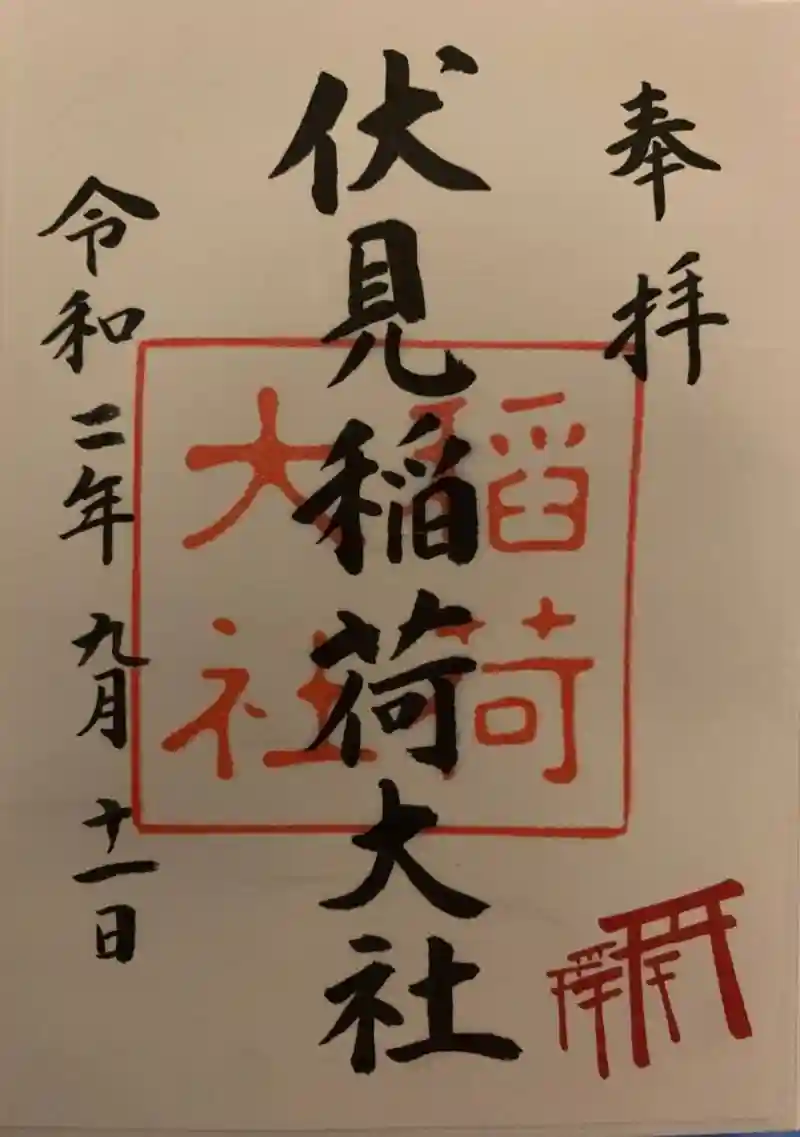 奉拝
伏見稲荷大社
稻荷
大社
令和二年九月十一日